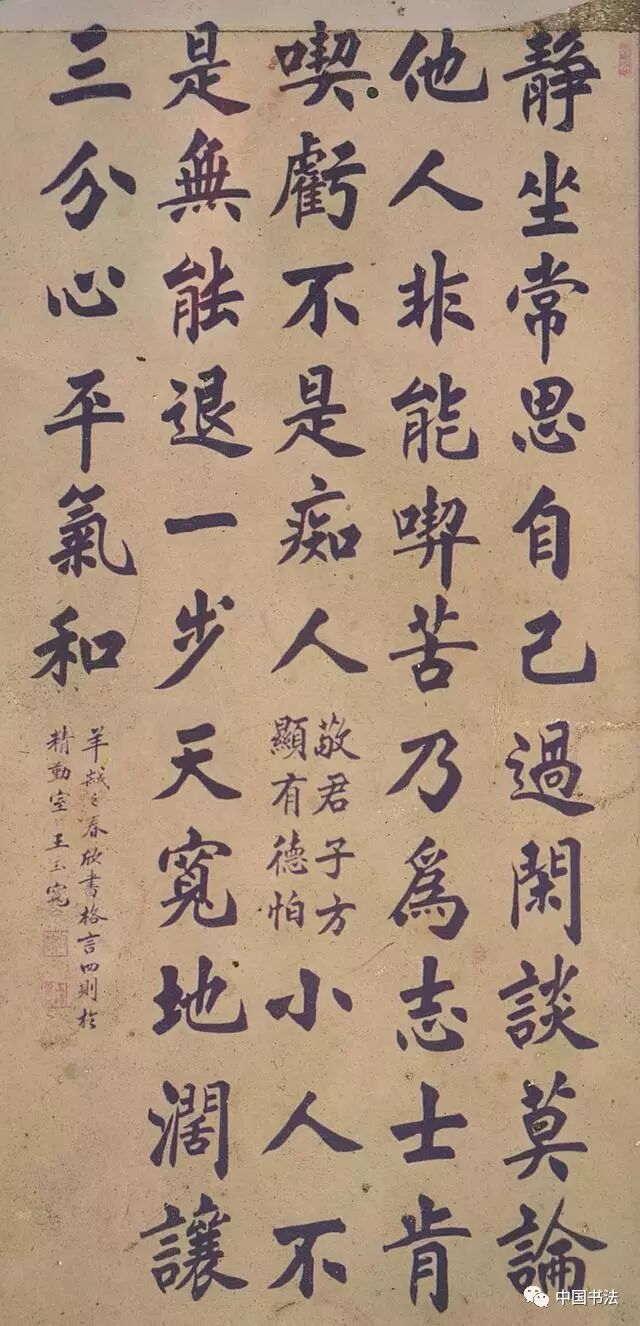 静坐常思自己過閑談莫論
他人非能喫苦乃爲志士肯
喫虧不是痴人
敬君子方
顯有德怕
小人不
是無能退一步天寬地濶讓
三分心平氣和
春欣書格言四則於
精勤室王玉寬
中国书法